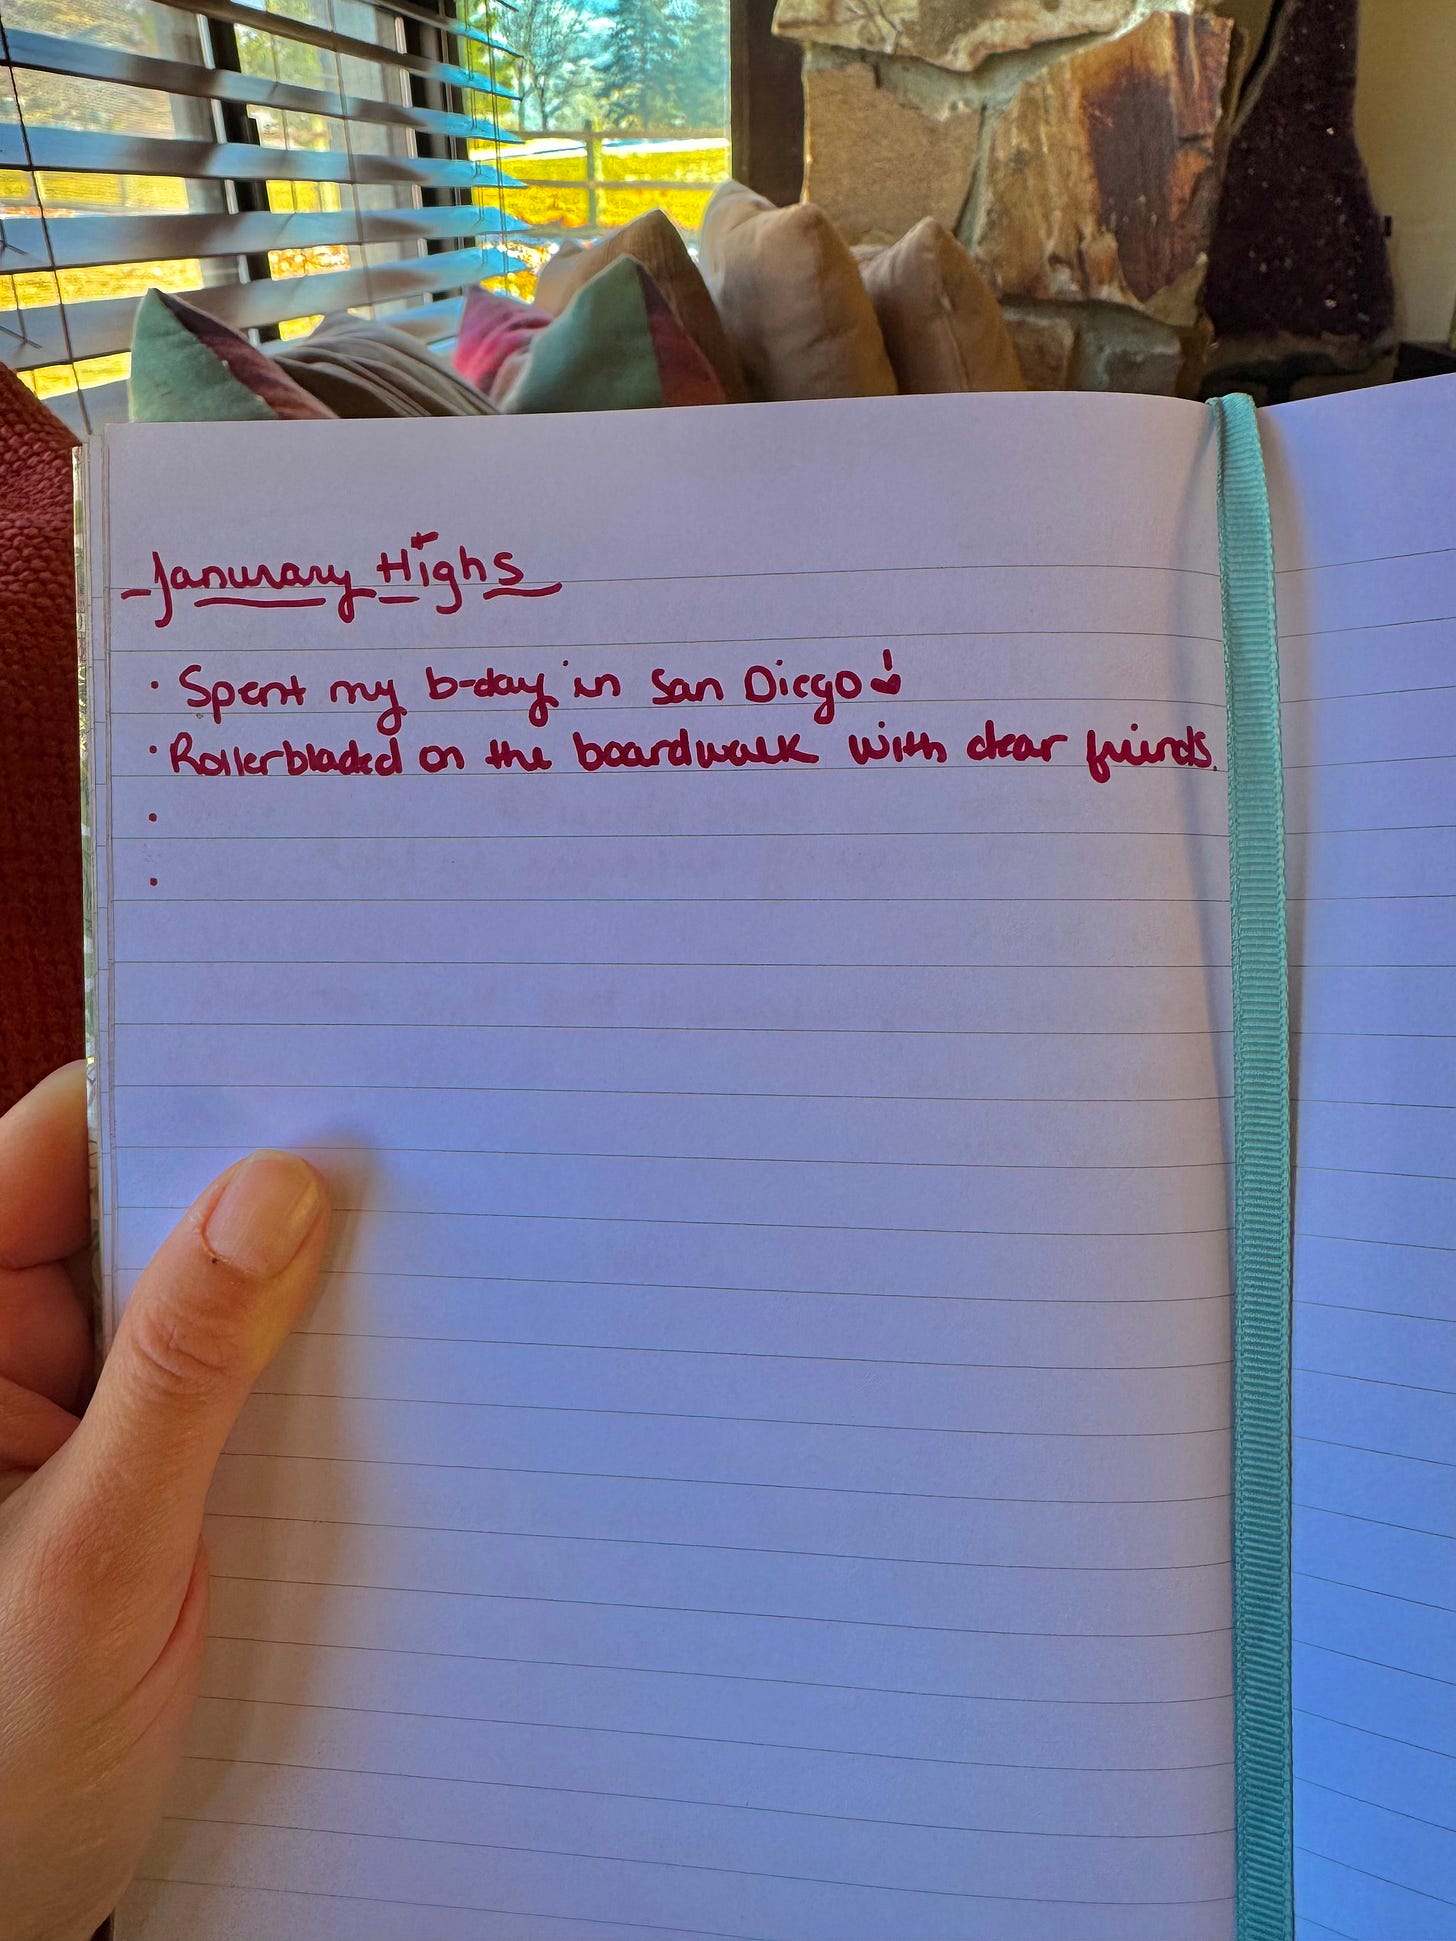 Janurary Highs
· Spent my b-day in San Diego!
· Rollerbladed on the boardwalk with dear friends.
·
·